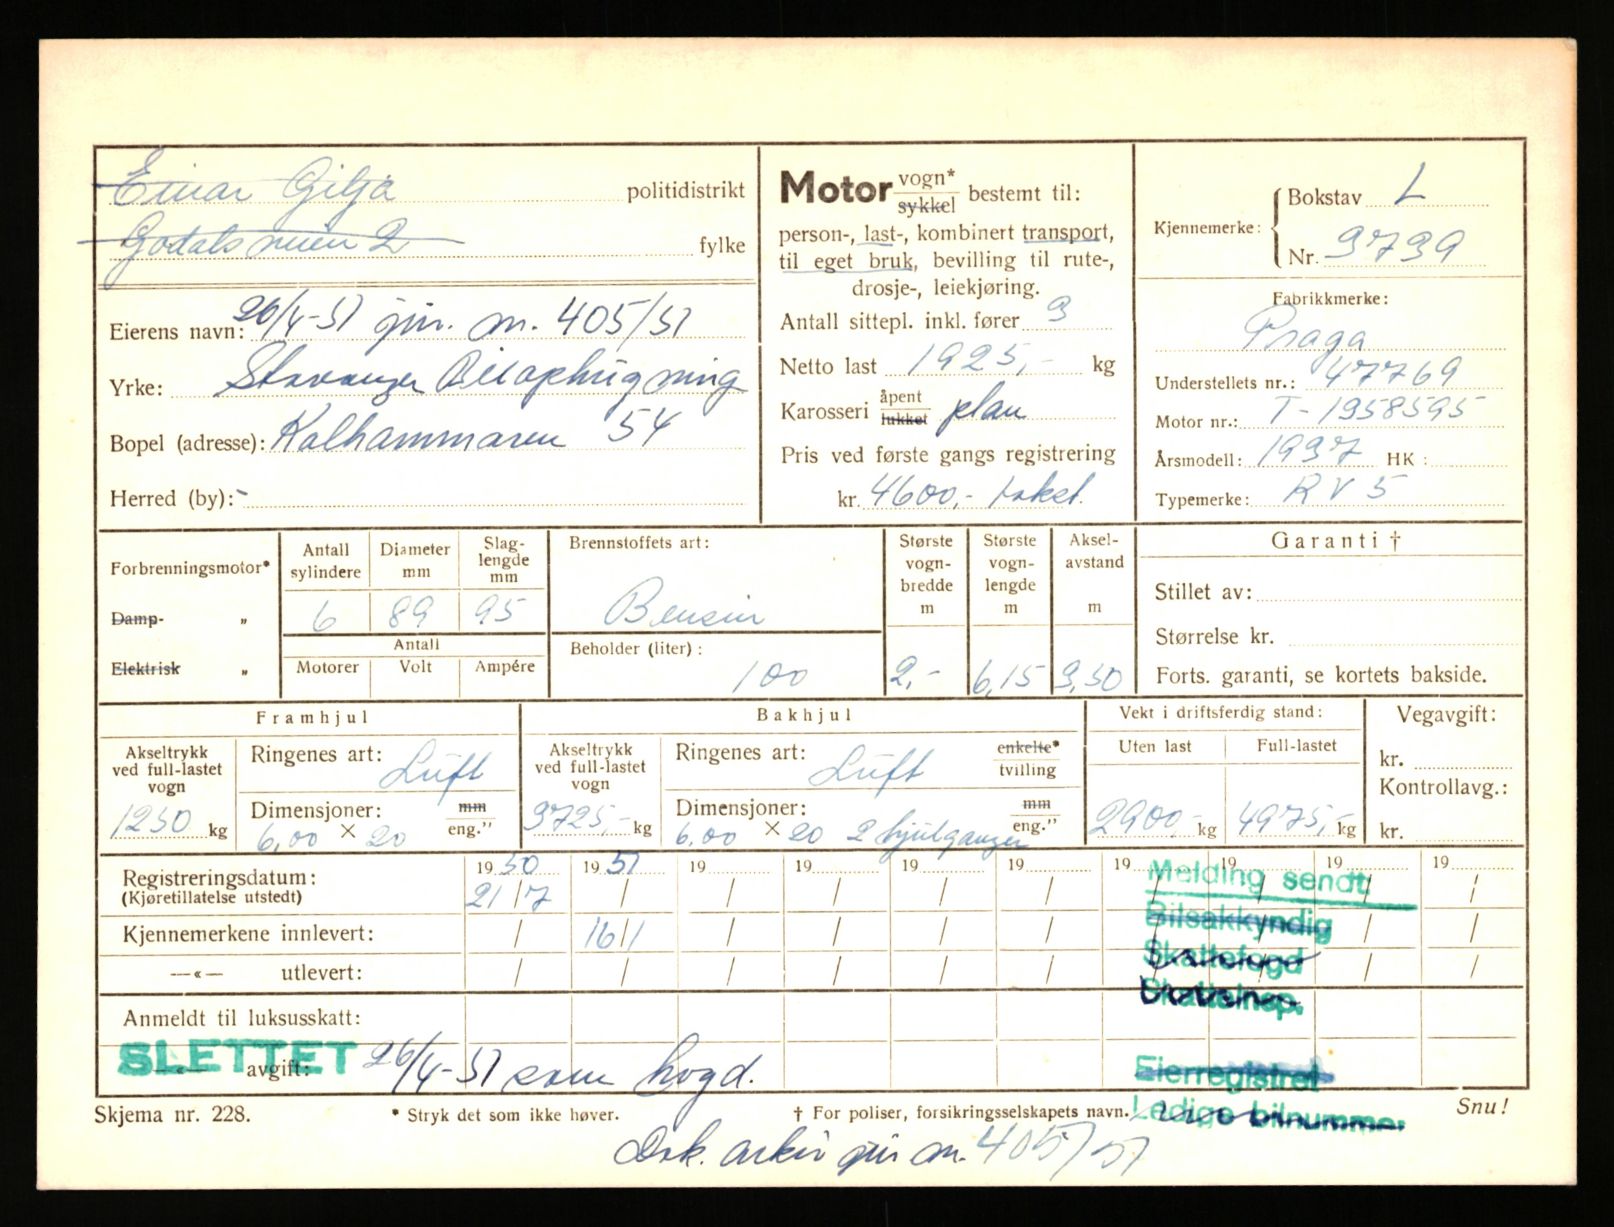 Einar Gilja politidistrikt
Godalsveien 2 fylke
Eierens navn: 26/4-51 jnr. 405/51
Yrke: Stavanger Bilophugning
Bopel (adresse): Kalhammaren 54
Herred (by): -
Motor vogn* sykkel bestemt til:
person-, last-, kombinert transport,
til eget bruk, bevilling til rute-,
drosje-, leiekjøring.
Antall sittepl. inkl. fører 3
Netto last 1925,- kg
Karosseri åpent lukket plan
Pris ved første gangs registrering
kr. 4600,- takst.
Kjennemerke: Bokstav L
Nr. 3739
Fabrikkmerke:
Praga
Understellets nr.: 47769
Motor nr.: T-1958595
Årsmodell: 1937 HK:
Typemerke: RV 5
Forbrenningsmotor*
Damp- „
Elektrisk „
Antall sylindere Diameter mm Slag-lengde mm
6 89 95
Antall
Motorer Volt Ampére
Brennstoffets art:
Bensin
Beholder (liter):
100
Største vogn-bredde m 2,-
Største vogn-lengde m 6,15
Aksel-avstand m 3,50
Garanti †
Stillet av:
Størrelse kr.
Forts. garanti, se kortets bakside.
Framhjul
Akseltrykk ved full-lastet vogn
1250 kg
Ringenes art: Luft
Dimensjoner: mm eng.”
6,00 × 20
Bakhjul
Akseltrykk ved full-lastet vogn
3725,- kg
Ringenes art: Luft enkelte* tvilling
Dimensjoner: mm eng.”
6.00 × 20 2 hjulganger
Vekt i driftsferdig stand:
Uten last Full-lastet
2900,- kg 4975,- kg
Vegavgift:
kr.
Kontrollavg.:
kr.
1950 1951 19 19 19 19 19 19 19 19
Registreringsdatum:
(Kjøretillatelse utstedt) 21/7 / / / / / / / / /
Kjennemerkene innlevert: / 16/1 / / / / / / / /
—«— utlevert: / / / / / / / / / /
Melding sendt
Bilsakkyndig
Skattefogd
Skatteinsp.
Eierregistret
Ledige bilnummer
Anmeldt til luksusskatt:
SLETTET
—«— avgift: 26/4-51 som hogd.
Skjema nr. 228. * Stryk det som ikke høver. † For poliser, forsikringsselskapets navn. Snu!
Dok. arkiv jnr 405/51